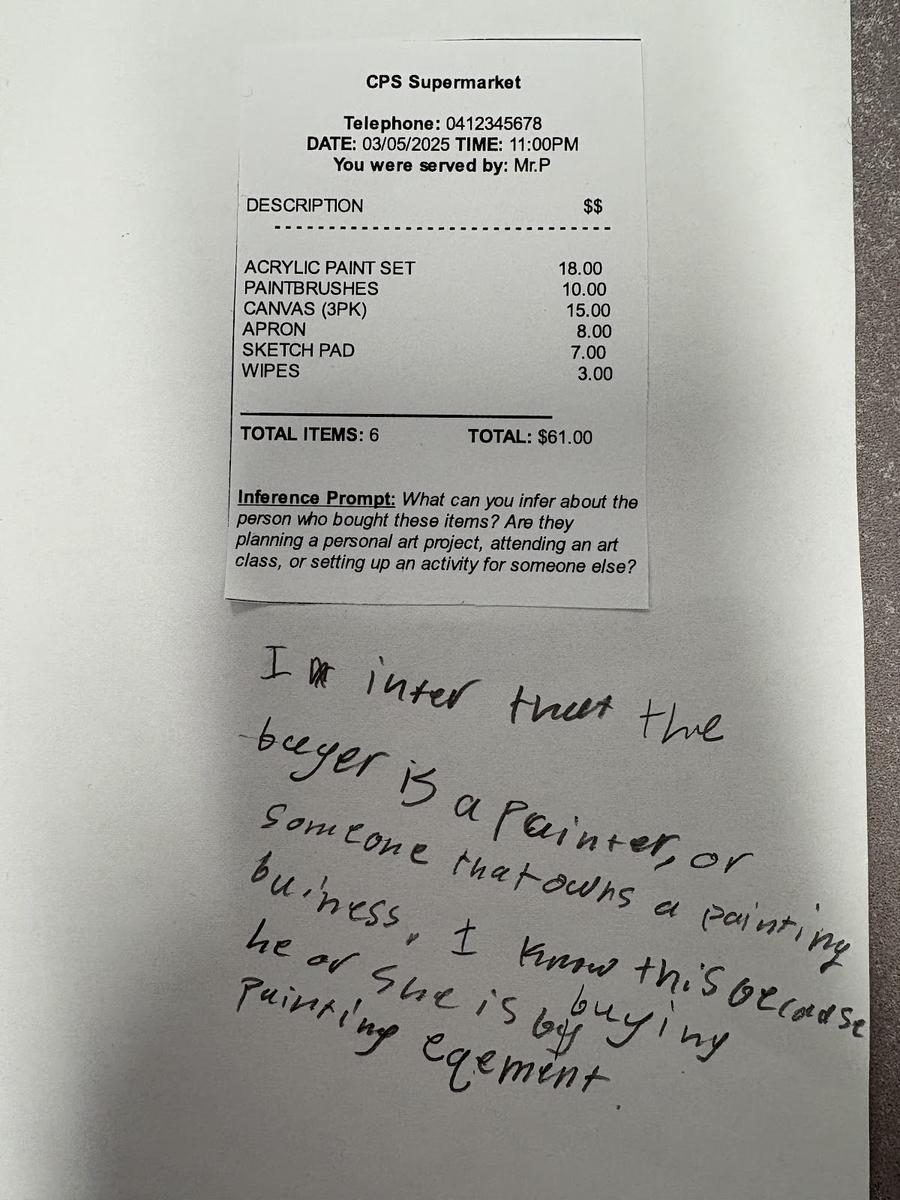 CPS Supermarket
Telephone: 0412345678
DATE: 03/05/2025 TIME: 11:00PM
You were served by: Mr.P
DESCRIPTION $$
- - - - - - - - - - - - - - - - - - - - - - - - - - - - - - -
ACRYLIC PAINT SET 18.00
PAINTBRUSHES 10.00
CANVAS (3PK) 15.00
APRON 8.00
SKETCH PAD 7.00
WIPES 3.00
TOTAL ITEMS: 6 TOTAL: $61.00
Inference Prompt: What can you infer about the
person who bought these items? Are they
planning a personal art project, attending an art
class, or setting up an activity for someone else?
I infer that the
buyer is a painter, or
someone that owns a painting
buiness. I know this because
he or she is buying
painting eqement.